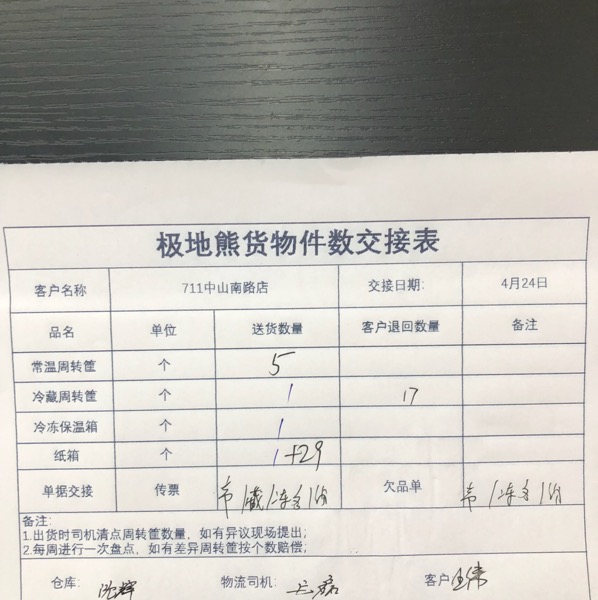 极地熊货物件数交接表
客户名称 711中山南路店 交接日期: 4月24日
品名 单位 送货数量 客户退回数量 备注
常温周转筐 个 5
冷藏周转筐 个 1 17
冷冻保温箱 个 1
纸箱 个 1+29
单据交接 传票 欠品单
备注:
1.出货时司机清点周转筐数量，如有异议现场提出;
2.每周进行一次盘点，如有差异周转筐按个数赔偿;
仓库: 物流司机: 客户 王伟